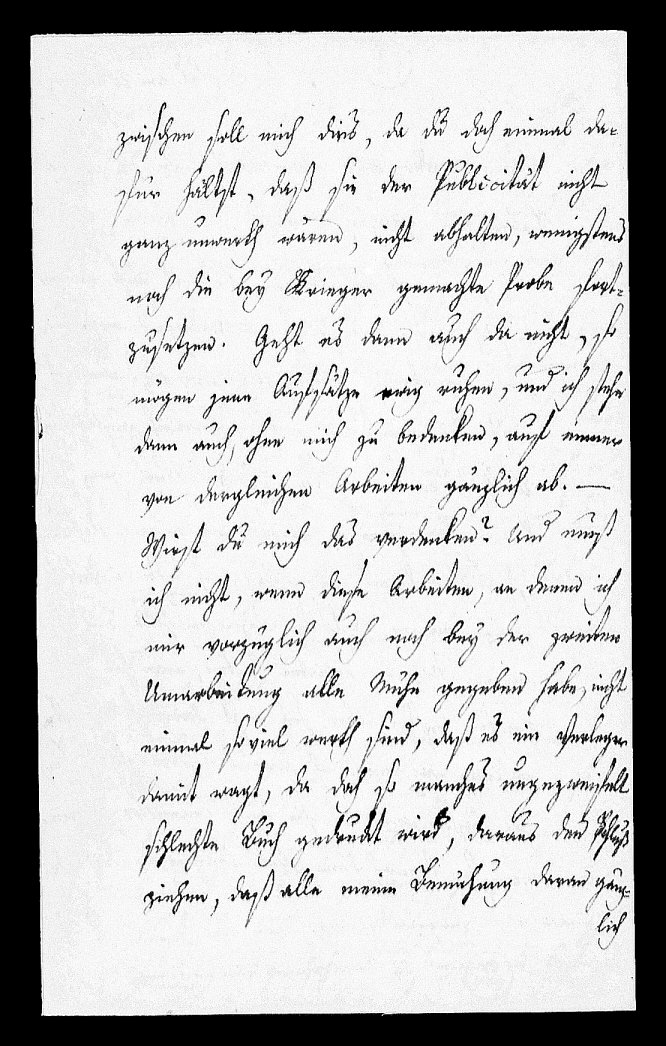 zwischen soll mich dies, da du doch einmal da-
für hältst, daß sie der Publicität nicht
ganz unwerth wären, nicht abhalten, wenigstens
noch die bey Krieger gemachte Probe fort-
zusetzen. Geht es dann auch da nicht, so
mögen jene Aufsätze ewig ruhen, und ich stehe
dann auch, ohne mich zu bedenken, auf immer
von dergleichen Arbeiten gänzlich ab. —
Wirst du mich das verdenken? Und muß
ich nicht, wenn diese Arbeiten, an denen ich
mir vorzüglich auch noch bey der zweiten
Umarbeitung alle Mühe gegeben habe, nicht
einmal soviel werth sind, daß es ein Verleger
damit wagt, da doch so manches ungezweifelt
schlechte Buch gedruckt wird, daraus den Schluß
ziehen, daß alle meine Bemühung daran gänz-
lich